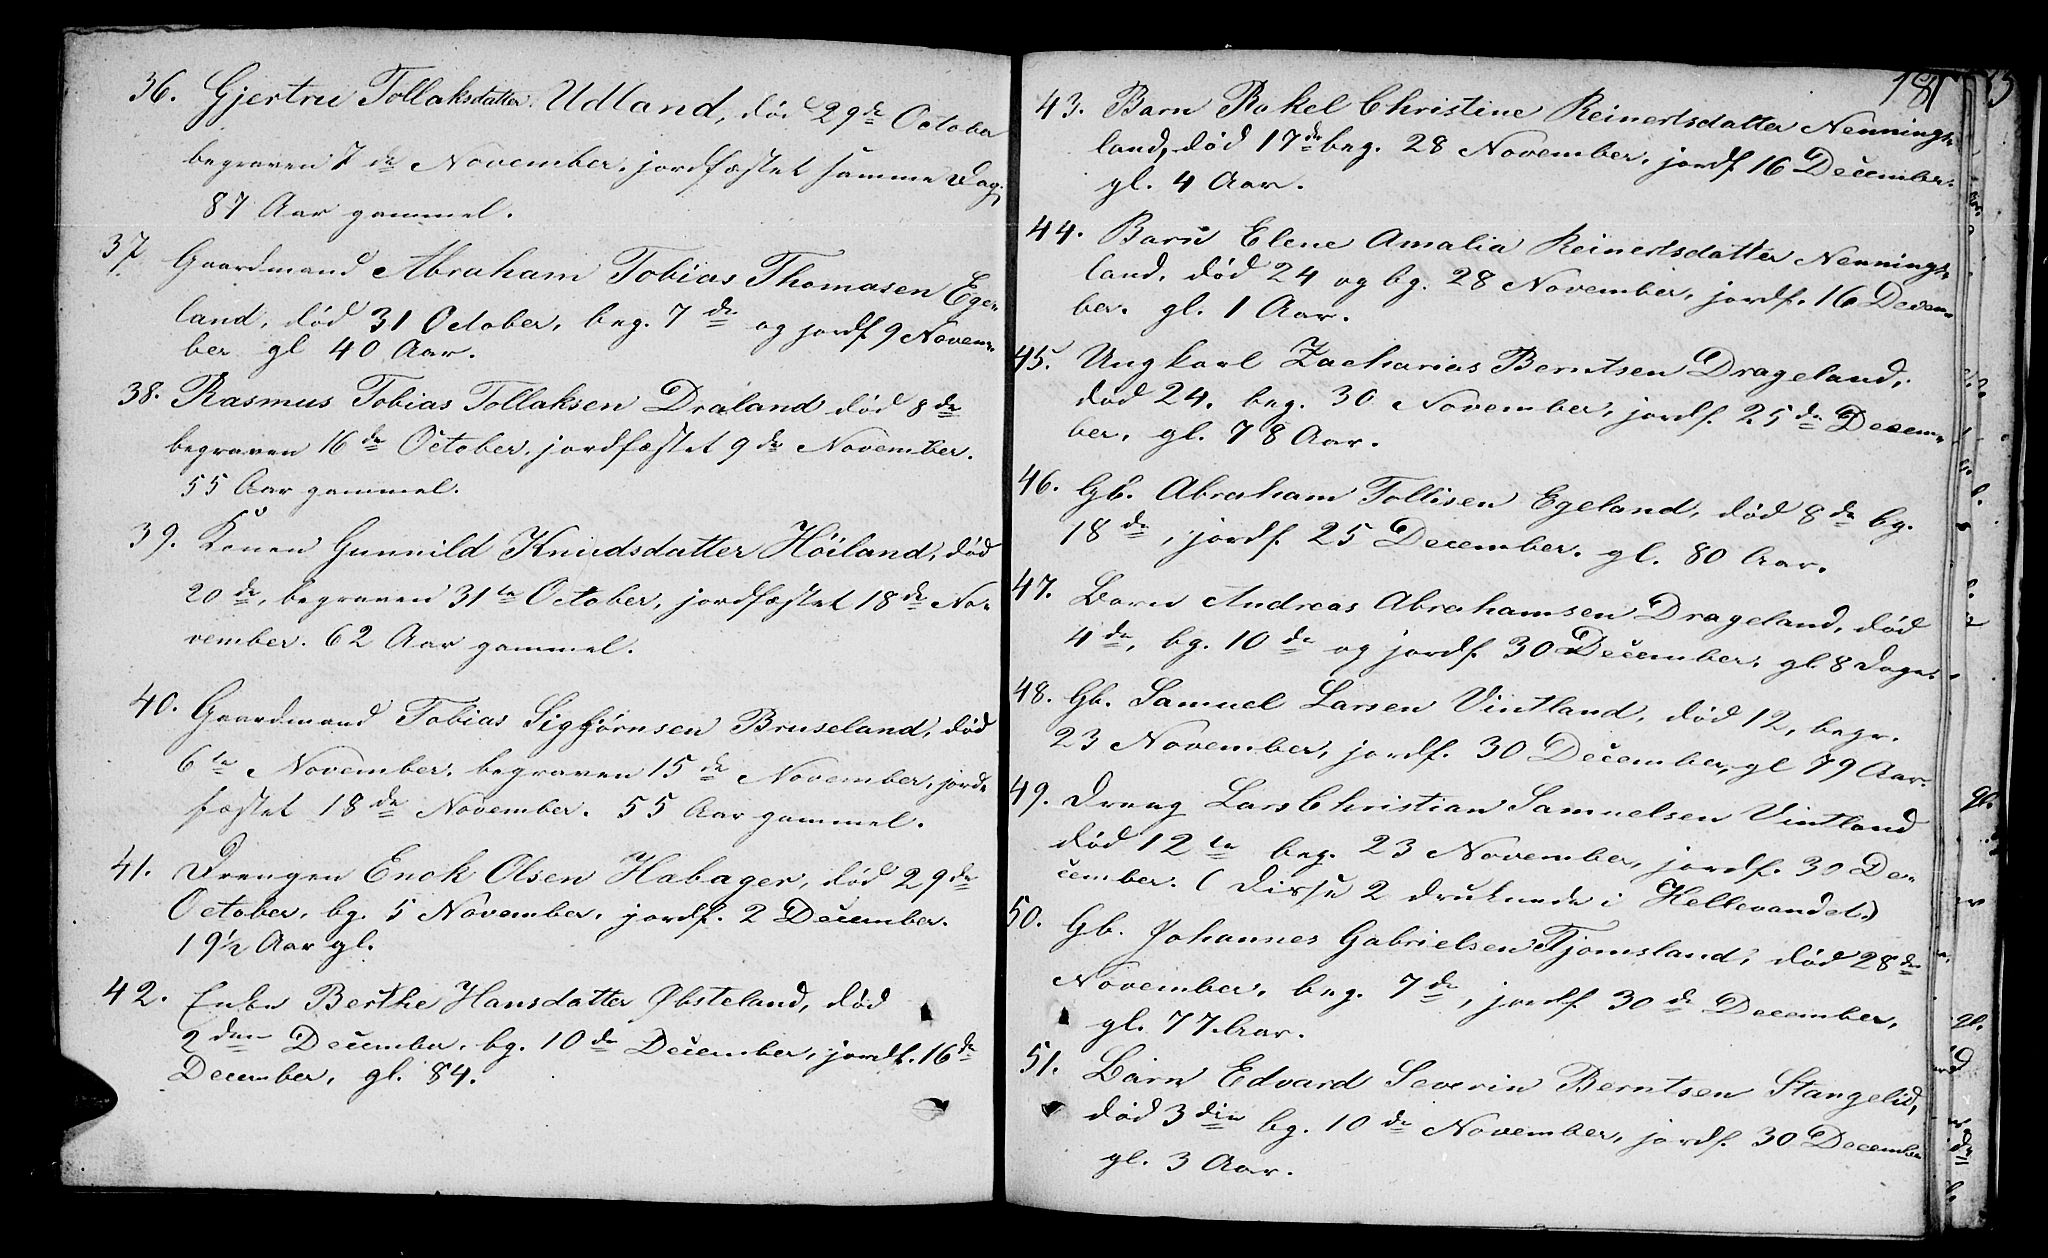 36. Gjertru Tollaksdatter Udland, død 29de October
begraven 7de November, jordfæstet samme Dag,
87 Aar gammel.
37. Gaardmand Abraham Tobias Thomasen Ege-
land, død 31 October, beg. 7de og jordf. 9 Novem-
ber gl 40 Aar.
38. Rasmus Tobias Tollaksen Draland død 8de
begraven 16de October, jordfæstet 9de November.
55 Aar gammel.
39. Konen Gunnild Knudsdatter Höiland, død
20de, begraven 31te October, jordfæstet 18de No-
vember. 62 Aar gammel.
40. Gaardmand Tobias Sigbjörnsen Bruseland, død
6te November, begraven 15de November, jord-
fæstet 18de November. 55 Aar gammel.
41. Drengen Enok Olsen Habager, død 29de
October, bg. 5 November, jordf. 2 December.
19½ Aar gl.
42. Enke Berthe Hansdatter Øbsteland, død
2den December, bg. 10de December, jordf. 16de
December, gl. 84.
181
43. Barn Rakel Christine Reinertsdatter Nennings-
land, død 17de beg. 28 November, jordf 16 December.
gl. 4 Aar.
44. Barn Elene Amalia Reinertsdatter Nennings-
land, død 24 og bg. 28 November, jordf. 16 Decem-
ber. gl. 1 Aar.
45. Ungkarl Zacharias Berntsen Drageland,
død 24. beg. 30 November, jordf. 25de Decem-
ber, gl. 78 Aar.
46. Gb. Abraham Tollisen Egeland, død 8de bg.
18de, jordf. 25 December. gl. 80 Aar.
47. Barn Andreas Abrahamsen Drageland, død
4de, bg. 10de og jordf. 30 December, gl 8 Dage.
48. Gb. Samuel Larsen Vintland, død 12, begr.
23 November, jordf. 30 December, gl 79 Aar.
49. Dreng Lars Christian Samuelsen Vintland
død 12te beg. 23 November, jordf. 30 De-
cember. (Disse 2 druknede i Hellevandet.)
50. Gb. Johannes Gabrielsen Tjomsland, død 28de
November, beg. 7de, jordf 30de December,
gl. 77 Aar.
51. Barn Edvard Severin Berntsen Stangelid,
død 3die bg. 10de November, jordf. 30 December
gl. 3 Aar.